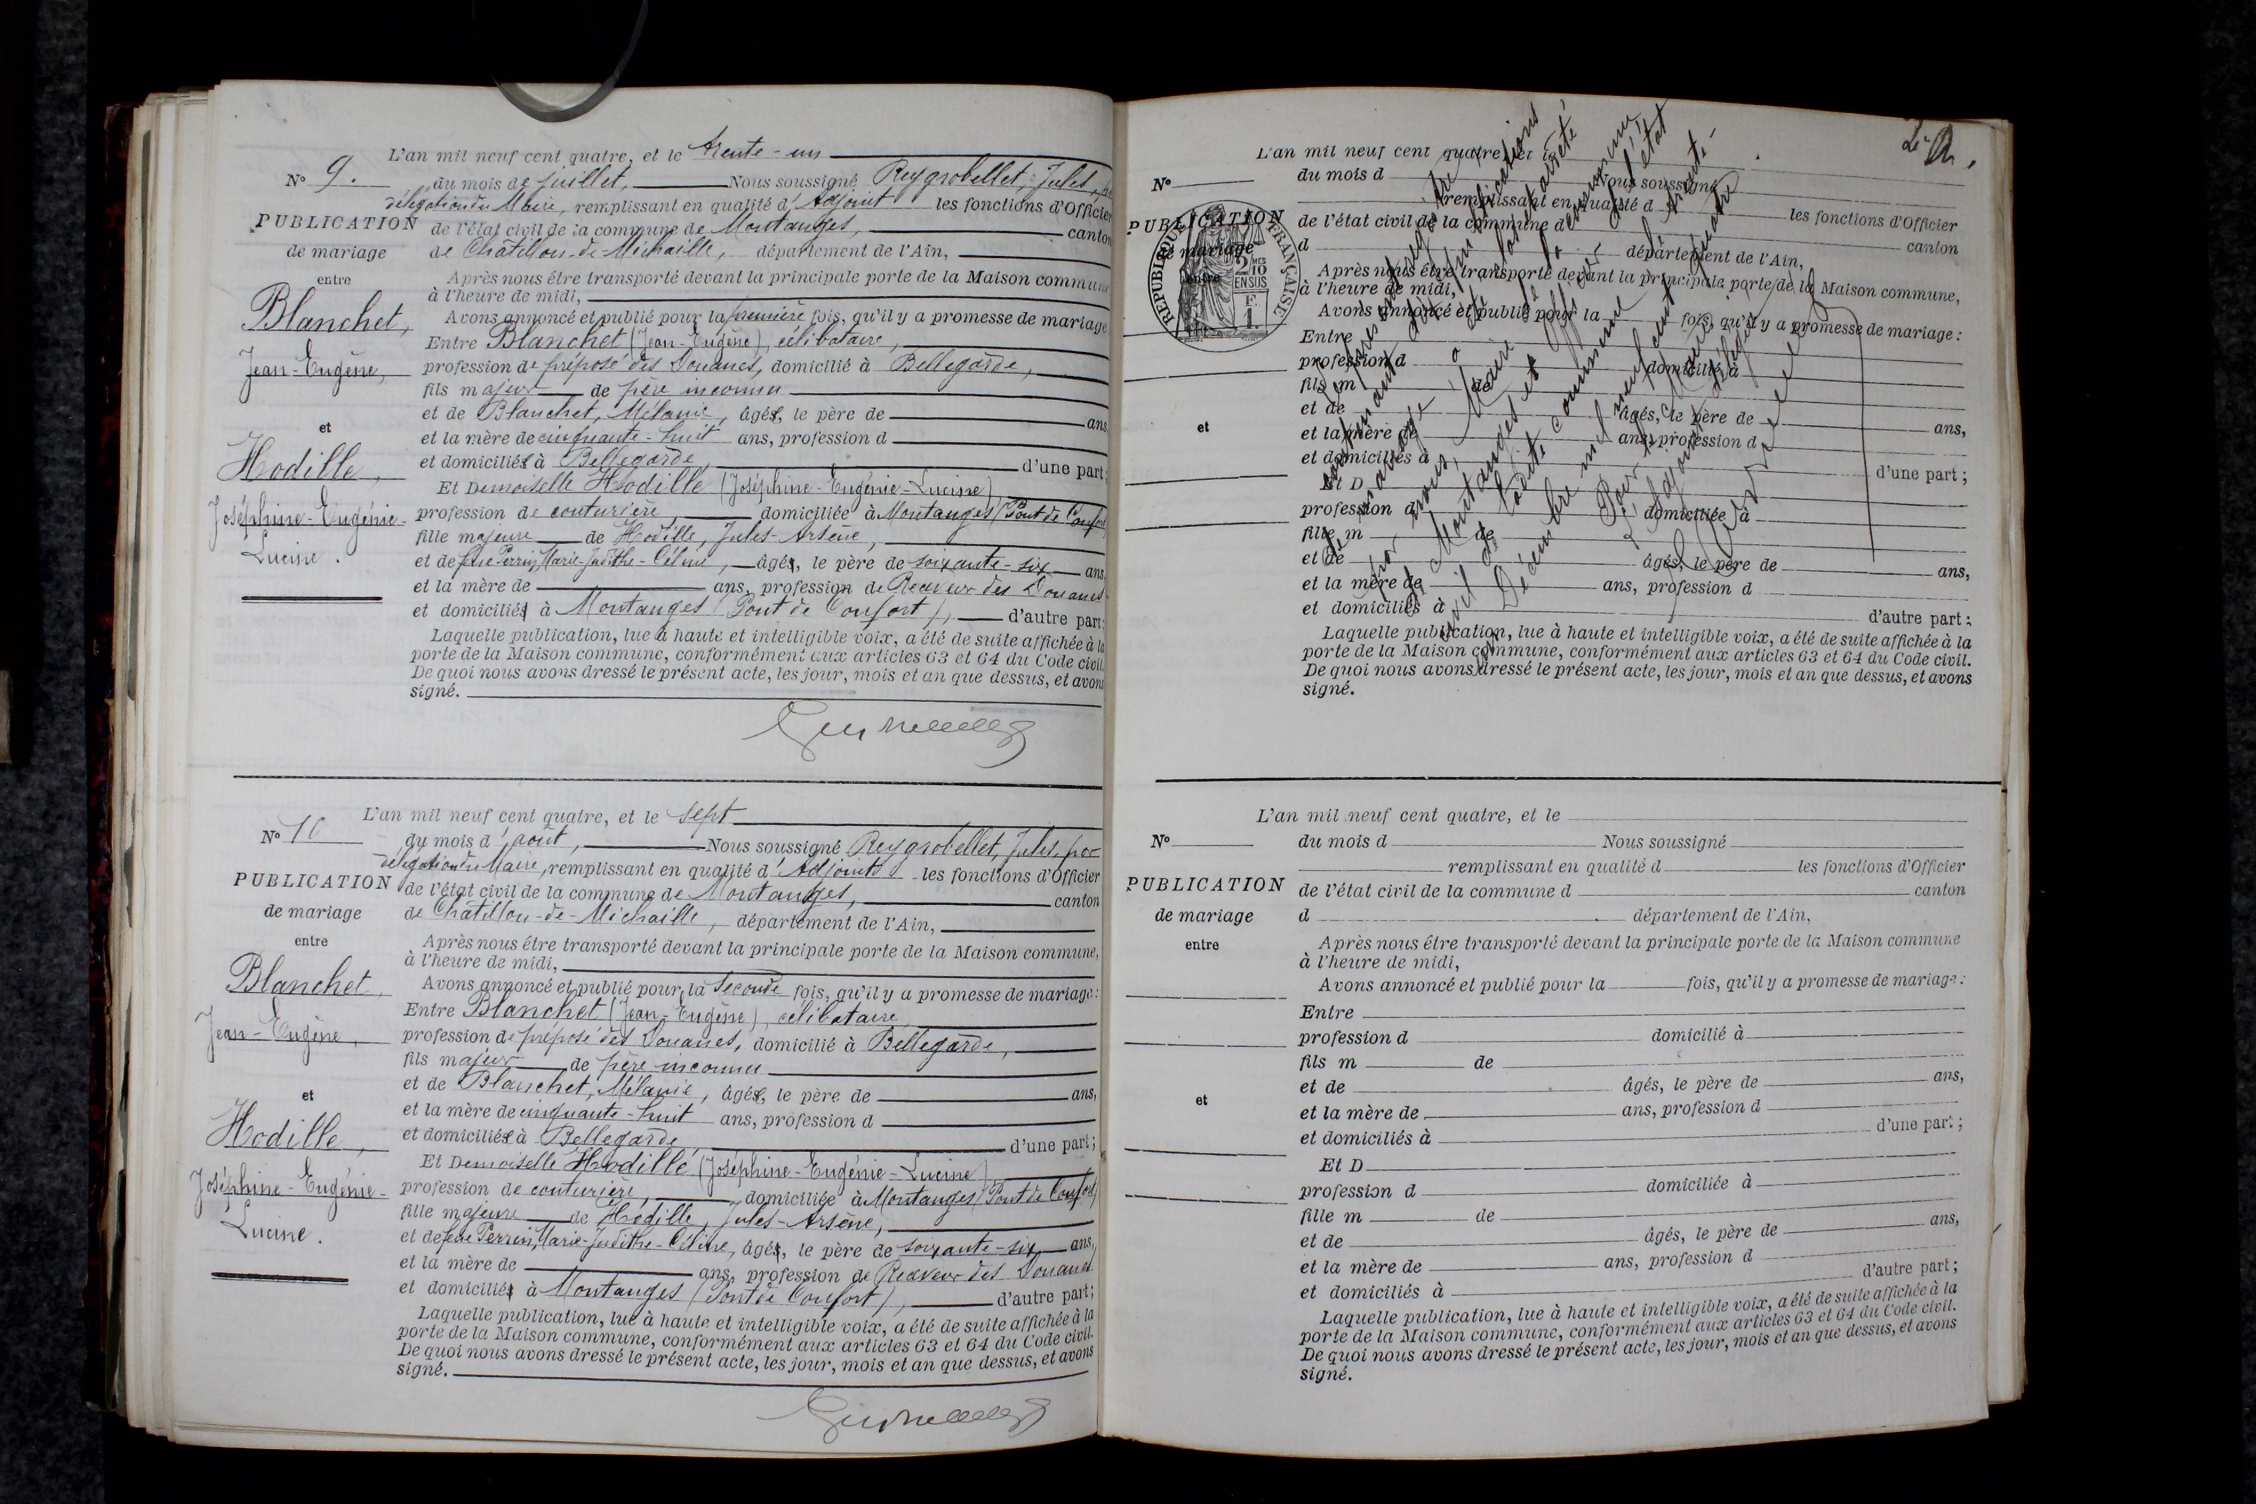 L'an mil neuf cent quatre, et le trente-un
N° 9. du mois de juillet, Nous soussigné Reygrobellet, Jules, par
délégation du Maire, remplissant en qualité d'Adjoint les fonctions d'Officier
PUBLICATION de l'état civil de la commune de Montanges, canton
de mariage de Châtillon-de-Michaille, département de l'Ain,
entre Après nous être transporté devant la principale porte de la Maison commune
à l'heure de midi,
Blanchet, Avons annoncé et publié pour la première fois, qu'il y a promesse de mariage
Entre Blanchet (Jean-Eugène), célibataire,
Jean-Eugène, profession de préposé des Douanes, domicilié à Bellegarde,
fils majeur de père inconnu
et de Blanchet, Mélanie, âgés, le père de ans,
et et la mère de cinquante-huit ans, profession d
Hodille, et domiciliés à Bellegarde, d'une part;
Et Demoiselle Hodille (Joséphine-Eugénie-Lucine)
Joséphine-Eugénie- profession de couturière, domiciliée à Montanges (Pont de Confort)
fille majeure de Hodille, Jules-Arsène,
Lucine. et de feue Perrin, Marie-Judithe-Céline, âgés, le père de soixante-six ans,
et la mère de ans, profession de Receveur des Douanes
et domiciliés à Montanges (Pont de Confort), d'autre part;
Laquelle publication, lue à haute et intelligible voix, a été de suite affichée à la
porte de la Maison commune, conformément aux articles 63 et 64 du Code civil.
De quoi nous avons dressé le présent acte, les jour, mois et an que dessus, et avons
signé.
L'an mil neuf cent quatre, et le sept
N° 10 du mois d'août, Nous soussigné Reygrobellet, Jules, par
délégation du Maire, remplissant en qualité d'Adjoint les fonctions d'Officier
PUBLICATION de l'état civil de la commune de Montanges, canton
de mariage de Châtillon-de-Michaille, département de l'Ain,
entre Après nous être transporté devant la principale porte de la Maison commune,
à l'heure de midi,
Blanchet, Avons annoncé et publié pour la seconde fois, qu'il y a promesse de mariage:
Entre Blanchet (Jean-Eugène), célibataire,
Jean-Eugène, profession de préposé des Douanes, domicilié à Bellegarde,
fils majeur de père inconnu
et de Blanchet, Mélanie, âgés, le père de ans,
et et la mère de cinquante-huit ans, profession d
Hodille, et domiciliés à Bellegarde, d'une part;
Et Demoiselle Hodille (Joséphine-Eugénie-Lucine)
Joséphine-Eugénie- profession de couturière, domiciliée à Montanges (Pont de Confort)
fille majeure de Hodille, Jules-Arsène,
Lucine. et de feue Perrin, Marie-Judithe-Céline, âgés, le père de soixante-six ans,
et la mère de ans, profession de Receveur des Douanes
et domiciliés à Montanges (Pont de Confort), d'autre part;
Laquelle publication, lue à haute et intelligible voix, a été de suite affichée à la
porte de la Maison commune, conformément aux articles 63 et 64 du Code civil.
De quoi nous avons dressé le présent acte, les jour, mois et an que dessus, et avons
signé.
L'an mil neuf cent quatre, et le
N° du mois d Nous soussigné
remplissant en qualité d les fonctions d'Officier
PUBLICATION de l'état civil de la commune d canton
de mariage d département de l'Ain,
entre Après nous être transporté devant la principale porte de la Maison commune,
à l'heure de midi,
Avons annoncé et publié pour la fois, qu'il y a promesse de mariage:
Entre
profession d domicilié à
fils m de
et de âgés, le père de ans,
et et la mère de ans, profession d
et domiciliés à d'une part;
Et D
profession d domiciliée à
fille m de
et de âgés, le père de ans,
et la mère de ans, profession d
et domiciliés à d'autre part;
Laquelle publication, lue à haute et intelligible voix, a été de suite affichée à la
porte de la Maison commune, conformément aux articles 63 et 64 du Code civil.
De quoi nous avons dressé le présent acte, les jour, mois et an que dessus, et avons
signé.
RÉPUBLIQUE FRANÇAISE
2 DMES 10
EN SUS
Le présent registre
contenant dix publications
de mariage a été clos et arrêté
par nous, Maire de la commune
de Montanges et officier de l'état
civil de ladite commune le trente-
un Décembre mil neuf cent quatre
Pour le Maire:
L'Adjoint délégué
L'an mil neuf cent quatre, et le
N° du mois d Nous soussigné
remplissant en qualité d les fonctions d'Officier
PUBLICATION de l'état civil de la commune d canton
de mariage d département de l'Ain,
entre Après nous être transporté devant la principale porte de la Maison commune
à l'heure de midi,
Avons annoncé et publié pour la fois, qu'il y a promesse de mariage:
Entre
profession d domicilié à
fils m de
et de âgés, le père de ans,
et et la mère de ans, profession d
et domiciliés à d'une part;
Et D
profession d domiciliée à
fille m de
et de âgés, le père de ans,
et la mère de ans, profession d
et domiciliés à d'autre part;
Laquelle publication, lue à haute et intelligible voix, a été de suite affichée à la
porte de la Maison commune, conformément aux articles 63 et 64 du Code civil.
De quoi nous avons dressé le présent acte, les jour, mois et an que dessus, et avons
signé.